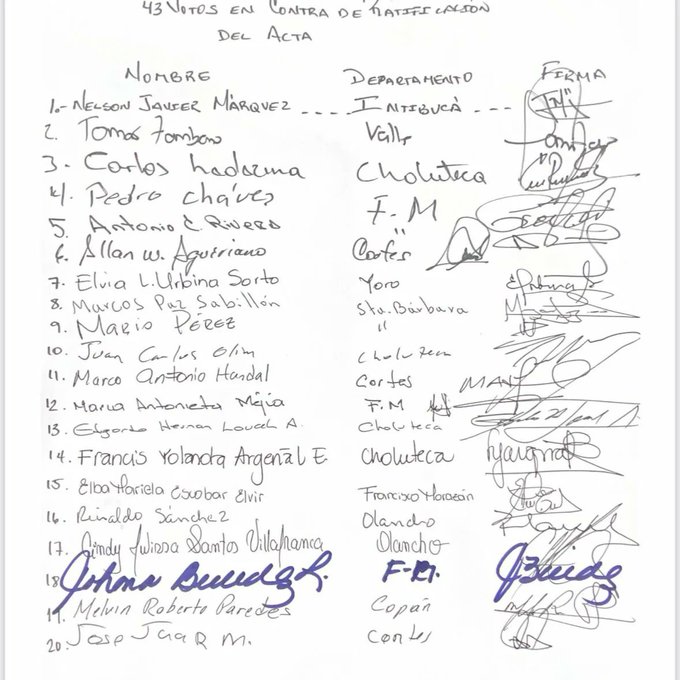 43 VOTOS EN CONTRA DE RATIFICACIÓN
DEL ACTA
NOMBRE DEPARTAMENTO FIRMA
1.- NELSON JAVIER MÁRQUEZ .... INTIBUCÁ ---
2. Tomas Zambon Valle
3. Carlos Ladezma Choluteca
4. Pedro Cháves F.M
5. Antonio C. Rivera "
6. Allan W. Cortés
7. Elvia L. Urbina Sorto Yoro
8. Marcos Paz Sabillón Sta. Bárbara
9. MARIO PÉREZ "
10. Juan Carlos Choluteca
11. Marco Antonio Handal Cortes
12. Maria Antonieta Mejía F.M
13. Edgardo Hernan Choluteca
14. Francis Yolanda Argeñal E Choluteca
15. Elba Mariela Escobar Elvir Francisco Morazán
16. Rinaldo Sánchez Olancho
17. Cindy Julissa Santos Villafranca Olancho
18 Johana F-M.
19. Melvin Roberto Paredes Copán
20. JOSE M. Cortes